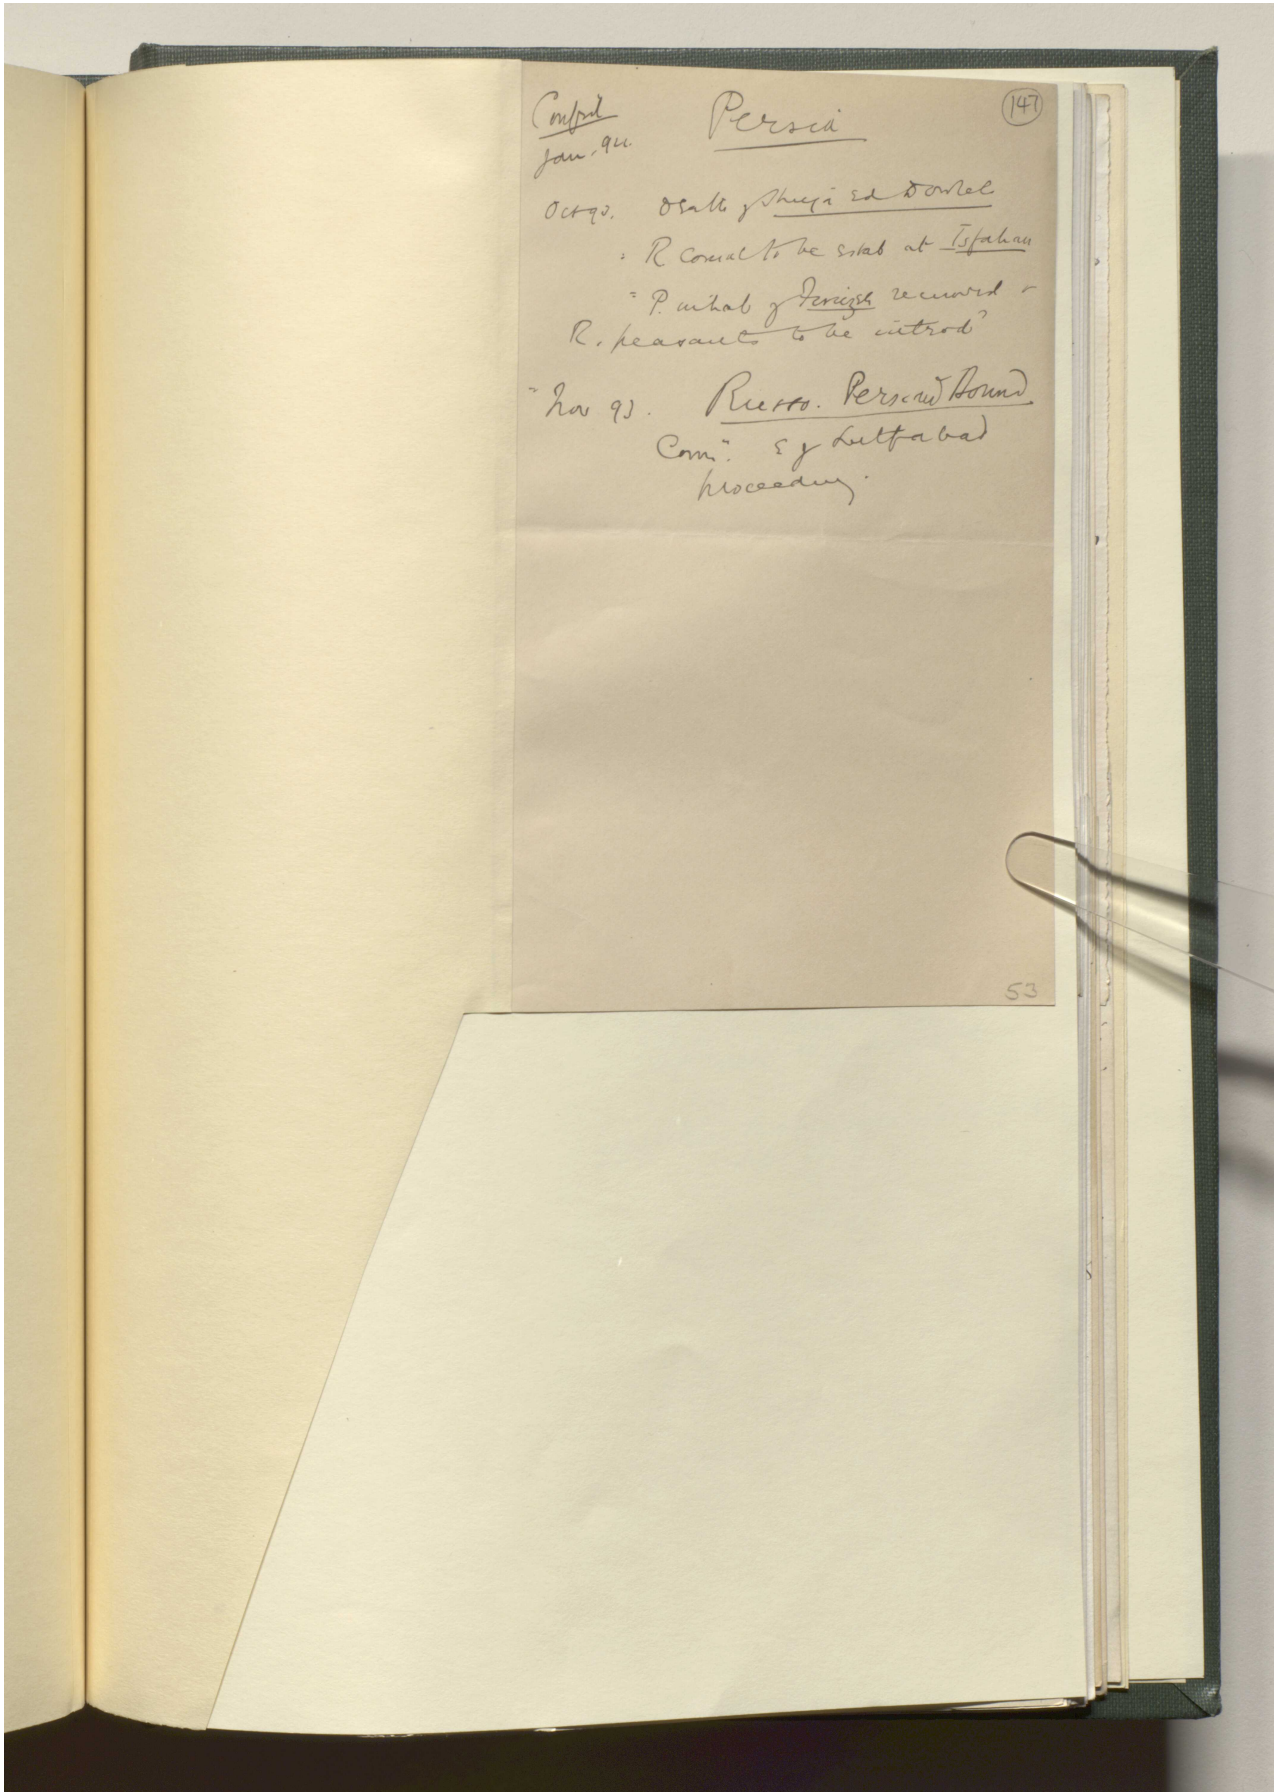 Confid
Jan. 94.
Persia
147
Oct 93. Death of Shuja Ed Dowleh
" R consul to be estab at Isfahan
" P. inhab of Firuzeh removed &
R. peasants to be introd
" Nov 93. Russo. Persian Bound
Comn. E of Lutfabad
proceeding.
53